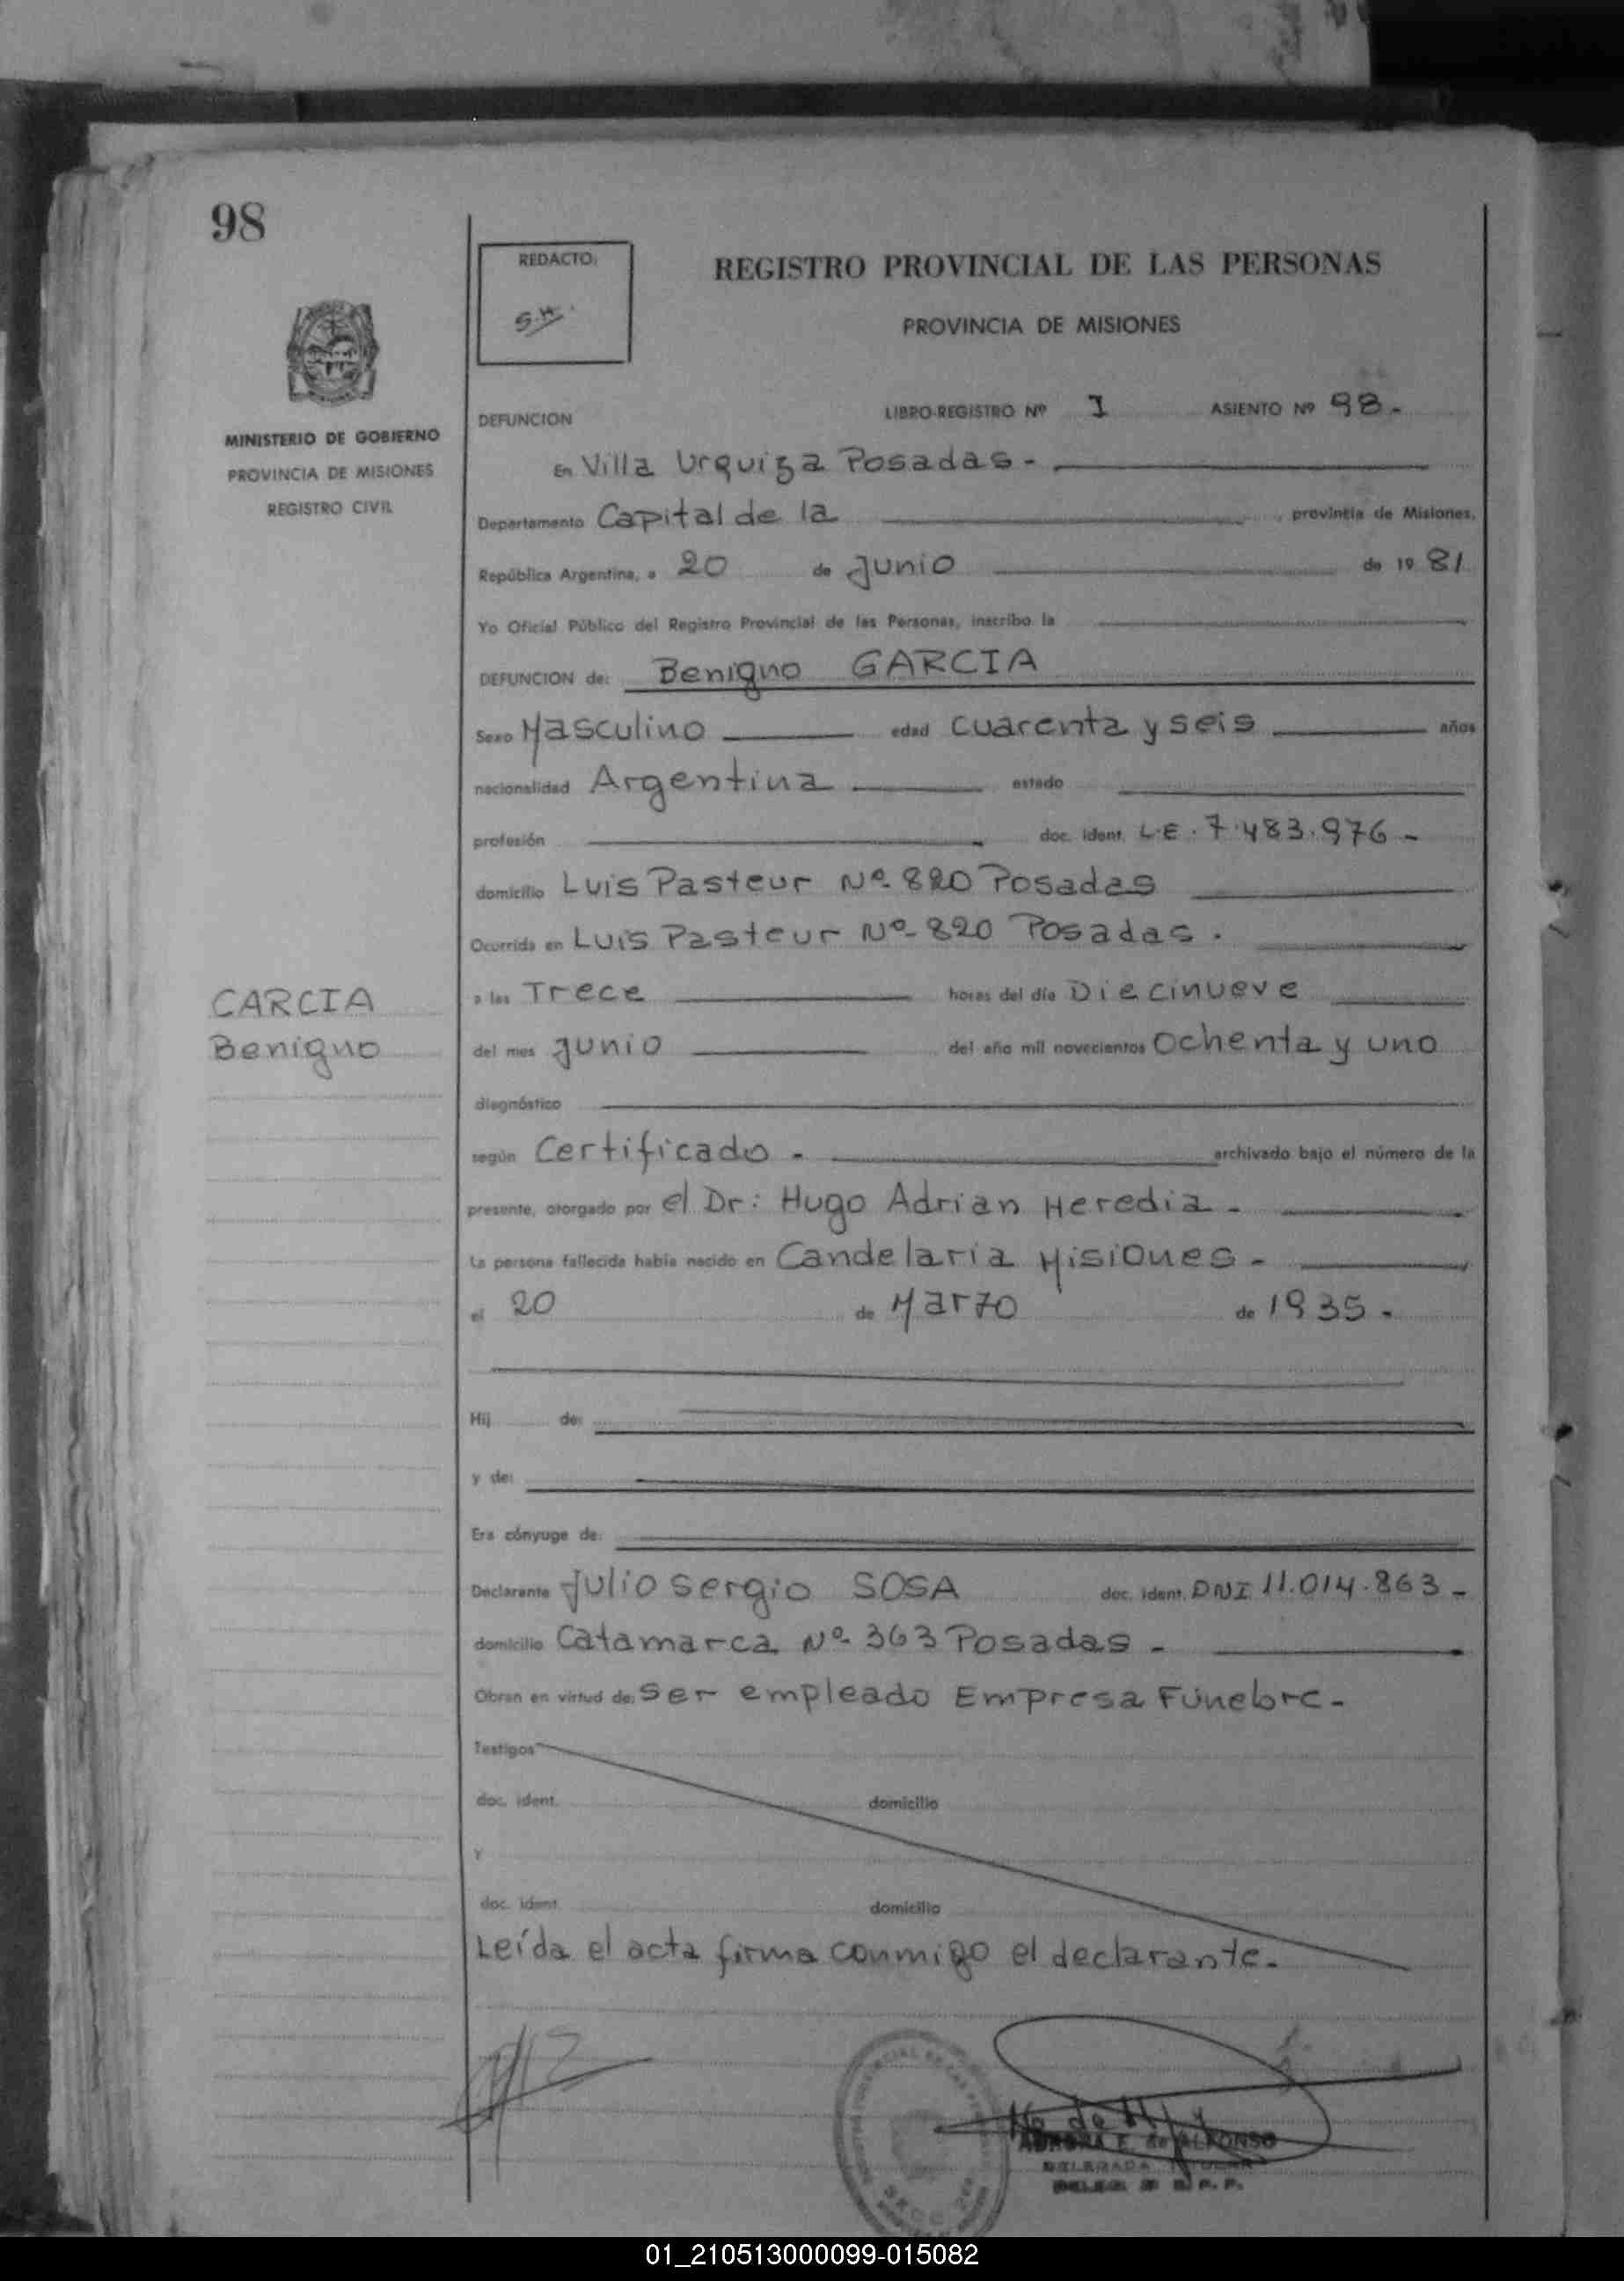 98
REDACTO:
REGISTRO PROVINCIAL DE LAS PERSONAS
PROVINCIA DE MISIONES
MINISTERIO DE GOBIERNO
PROVINCIA DE MISIONES
REGISTRO CIVIL
DEFUNCION LIBRO-REGISTRO Nº 1 ASIENTO Nº 98.-
En Villa Urquiza Posadas -
Departamento Capital de la , provincia de Misiones,
República Argentina, a 20 de Junio de 19 81
Yo Oficial Público del Registro Provincial de las Personas, inscribo la
DEFUNCION de: Benigno GARCIA
Sexo Masculino edad cuarenta y seis años
nacionalidad Argentina estado
profesión doc. ident. L.E. 7.483.976 -
domicilio Luis Pasteur Nº 820 Posadas
Ocurrida en Luis Pasteur Nº 820 Posadas.
a las Trece horas del día Diecinueve
del mes Junio del año mil novecientos Ochenta y uno
CARCIA
Benigno
diagnóstico
según Certificado - archivado bajo el número de la
presente, otorgado por el Dr: Hugo Adrian Heredia -
La persona fallecida había nacido en Candelaria Misiones -
el 20 de Marzo de 1935 -
Hij de:
y de:
Era cónyuge de:
Declarante Julio Sergio SOSA doc. ident. DNI 11.014.863 -
domicilio Catamarca Nº 363 Posadas -
Obran en virtud de: Ser empleado Empresa Fúnebre -
Testigos
doc. ident. domicilio
Y
doc. ident. domicilio
Leída el acta firma conmigo el declarante -
E. de ALFONSO
DELEGADA TITULAR
01_210513000099-015082